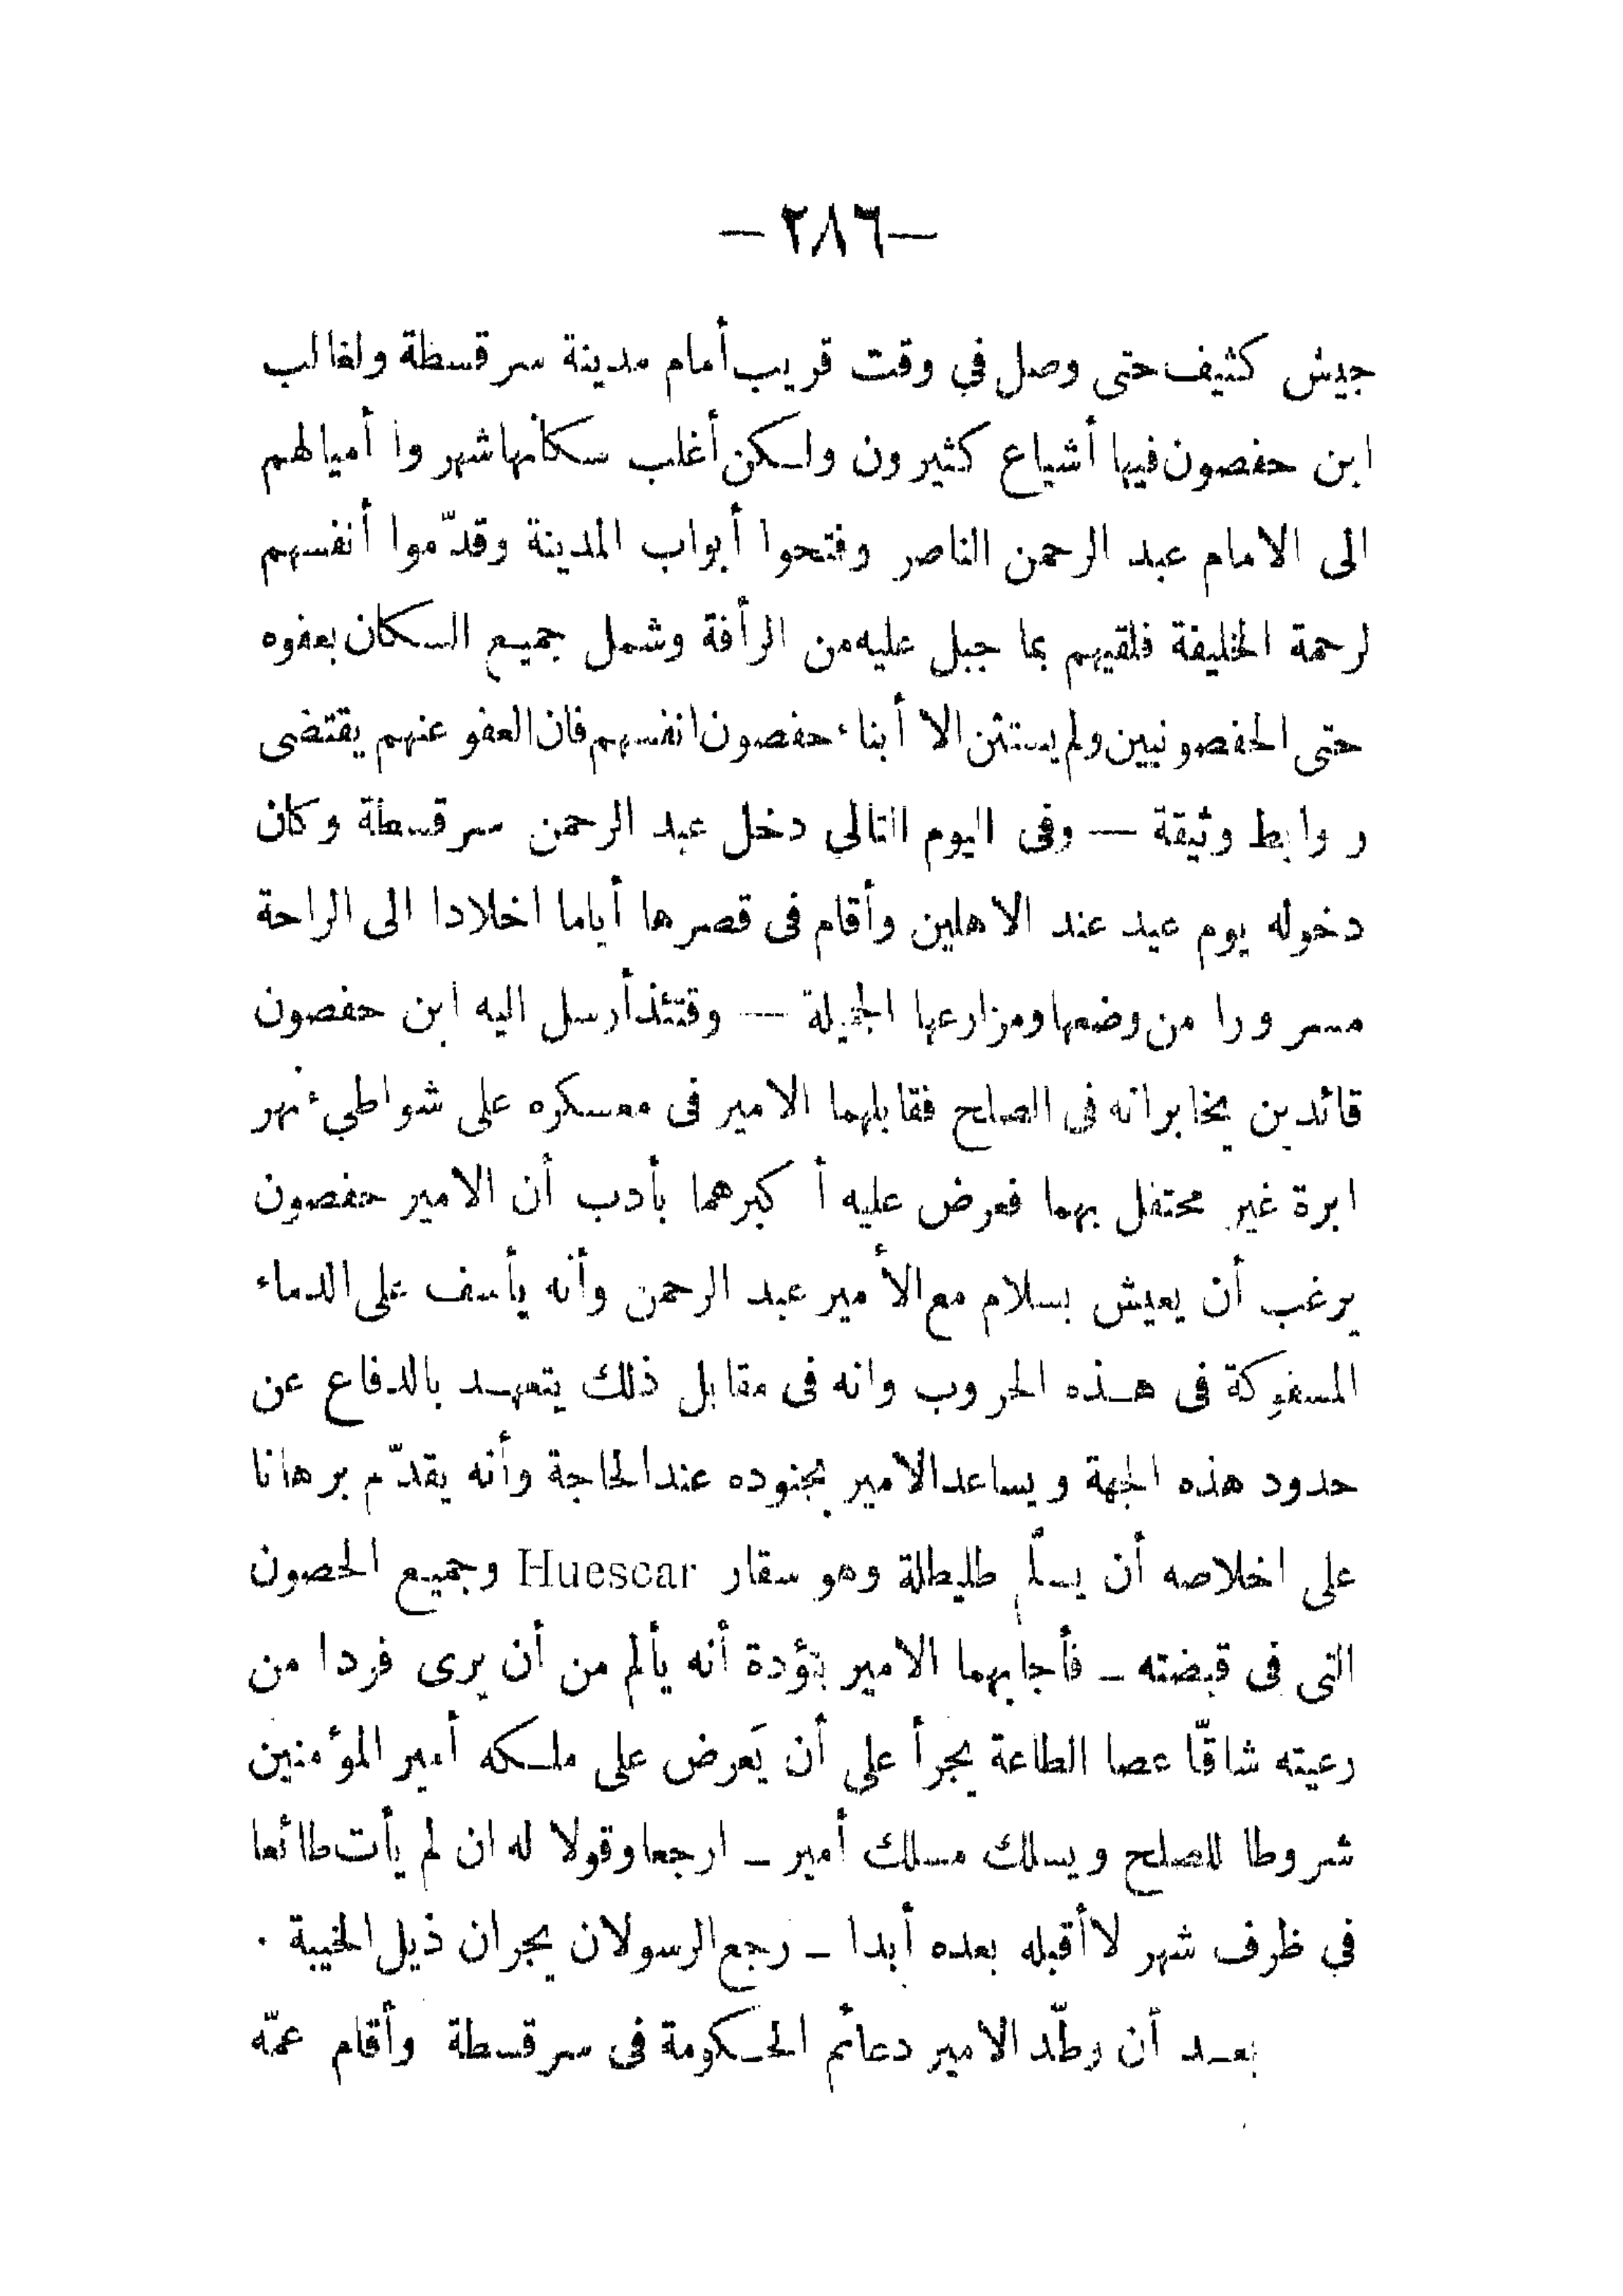 — ٢٨٦ —
جيش كثيف حتى وصل في وقت قريب أمام مدينة سرقسطة ولغالب
ابن حفصون فيها أشياع كثيرون ولكن أغلب سكانها شهروا أميالهم
الى الامام عبد الرحمن الناصر وفتحوا أبواب المدينة وقدّموا أنفسهم
لرحمة الخليفة فلقيهم بما جبل عليه من الرأفة وشمل جميع السكان بعفوه
حتى الحفصونيين ولم يستثن الا أبناء حفصون انفسهم فان العفو عنهم يقتضى
روابط وثيقة — وفى اليوم التالي دخل عبد الرحمن سرقسطة وكان
دخوله يوم عيد عند الاهلين وأقام فى قصرها أياما اخلادا الى الراحة
مسرورا من وضعها ومزارعها الجميلة — وقتئذ أرسل اليه ابن حفصون
قائدين يخابرانه فى الصلح فقابلهما الامير فى معسكره على شواطيء نهر
ابرة غير محتفل بهما فعرض عليه أكبرهما بأدب أن الامير حفصون
يرغب أن يعيش بسلام مع الأمير عبد الرحمن وأنه يأسف على الدماء
المسفوكة فى هذه الحروب وانه فى مقابل ذلك يتعهد بالدفاع عن
حدود هذه الجهة ويساعد الامير بجنوده عند الحاجة وأنه يقدّم برهانا
على اخلاصه أن يسلّم طليطلة وهو سقار Huescar وجميع الحصون
التى فى قبضته – فأجابهما الامير بتؤدة أنه يألم من أن يرى فردا من
رعيته شاقّا عصا الطاعة يجرأ على أن يَعرض على ملكه أمير المؤمنين
شروطا للصلح ويسلك مسلك أمير – ارجعا وقولا له ان لم يأت طائعا
في ظرف شهر لا أقبله بعده أبدا – رجع الرسولان يجران ذيل الخيبة .
بعد أن وطّد الامير دعائم الحكومة فى سرقسطة وأقام عمّه